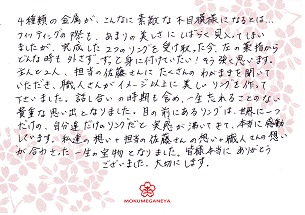 4種類の金属が、こんなに素敵な木目模様になるとは…
フィッティングの際も、あまりの美しさにしばらく見入ってしまい
ましたが、完成した2つのリングを受け取った今、左の薬指から
どんな時も外さず、ずっと身に付けていたい！そう強く思います。
主人と2人、担当の佐藤さんにたくさんのわがままを聞いて
いただき、職人さんがイメージ以上に美しいリングを作って
下さいました。話し合いの時期も含め、一生忘れることのない
貴重な思い出となりました。目の前にあるリングは世界に一つ
だけの、自分達だけのリングだと実感が湧いてきて、本当に感動
しています。私達の想い＋担当の佐藤さんの想い＋職人さんの想い
が合わさった一生の宝物となりました。皆様本当にありがとう
ございました。大切にします。
MOKUMEGANEYA